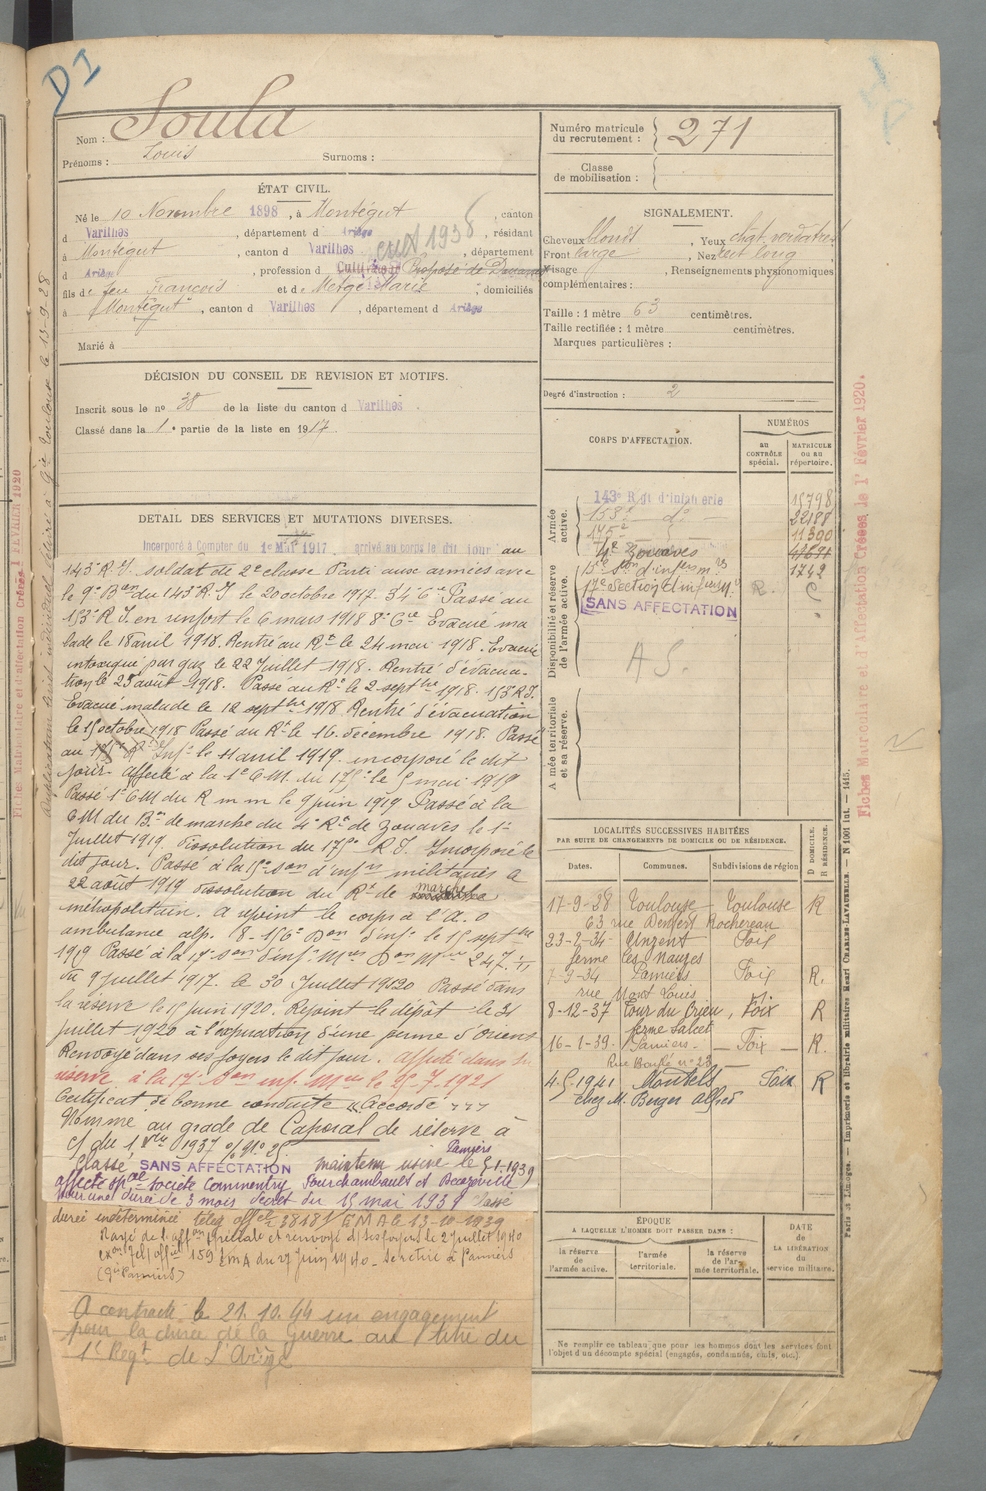 DI
Nom : Soula
Prénoms : Louis Surnoms :
ÉTAT CIVIL.
Né le 10 Novembre 1898, à Montégut, canton
d Varilhes, département d Ariège, résidant
à Montégut, canton d Varilhes, département
d Ariège, profession d Cultivateur Préposé de Douanes
fils de feu François et de Metge Marie, domiciliés
à Montégut, canton d Varilhes, département d Ariège
Marié à
DÉCISION DU CONSEIL DE REVISION ET MOTIFS.
Inscrit sous le no 38 de la liste du canton d Varilhes.
Classé dans la 1e partie de la liste en 1917.
DÉTAIL DES SERVICES ET MUTATIONS DIVERSES.
Incorporé à Compter du 1er Mai 1917 arrivé au corps le dit jour au
143e R.I. soldat de 2e classe Parti aux armées avec
le 9e Bon du 143e R.I. le 20 octobre 1917. 34e Cie Passé au
153e R.I. en renfort le 6 mars 1918 8e Cie Evacué ma
lade le 18 avril 1918. Rentré au Rt le 24 mai 1918. Evacué
intoxiqué par gaz le 22 Juillet 1918. Rentré d'évacua-
tion le 25 août 1918. Passé au Rt le 2 septbre 1918. 153e R.I.
Evacué malade le 12 septbre 1918 Rentré d'évacuation
le 15 octobre 1918 Passé au Rt le 16 decembre 1918. Passé
au 175e Rt Infie le 11 avril 1919. incorporé le dit
jour. Affecté à la 1e C.M. du 175e le 5 mai 1919
Passé 1e CM du R m m le 9 juin 1919 Passé à la
CM du Bon de marche du 4e Rt de Zouaves le 1er
Juillet 1919. Dissolution du 175e R.I. Incorporé le
dit jour. Passé à la 15e Son d'infrs militaires le
22 août 1919 Dissolution du Rt de marche
métropolitain. A rejoint le corps à l'A.O
ambulance alp. 8-156e Son d'infrs le 15 septbre
1919 Passé à la 15e Son d'infrs Mres
du 9 juillet 1917. le 30 Juillet 1920 Passé dans
la réserve le 15 juin 1920. Rejoint le dépôt le 31
juillet 1920 à l'expiration d'une perme d'Orient
Renvoyé dans ses foyers le dit jour. Affecté dans la
réserve à la 17e Son inf. Mres le 25-7-1921
Certificat de bonne conduite "Accordé"
Nommé au grade de Caporal de réserve à
Classé SANS AFFECTATION maintenu usine de Pamiers 5.1.1939
affecté spcal Société Commentry Fourchambault et Decazeville
pour une durée de 3 mois decret du 15 mai 1939 classé
durée indéterminée téleg offel 3818 EMA le 13-10-1939
Rayé de l'affon spéciale et renvoyé ds ses foyers le 2 Juillet 1940
159 EMA du 27 Juin 1940. Se retire à Pamiers
A contracté le 21.10.44 un engagement
pour la durée de la Guerre au titre du
1er Regt de L'Ariège
Numéro matricule du recrutement : 271
Classe de mobilisation :
SIGNALEMENT.
Cheveux blonds, Yeux chat. verdatres
Front large, Nez rect long
Visage, Renseignements physionomiques
complémentaires :
Taille : 1 mètre 63 centimètres.
Taille rectifiée : 1 mètre centimètres.
Marques particulières :
Degré d'instruction : 2
CORPS D'AFFECTATION.
NUMÉROS
au CONTRÔLE spécial.
MATRICULE ou au répertoire.
Armée active.
143e Rgt d'Infanterie 15798
153e do 22188
175e 11390
4e Zouaves
15e Son d'infirm mres 1742
Disponibilité et réserve de l'armée active.
17e Section d'infirm M. R.
SANS AFFECTATION
A S.
Armée territoriale et sa réserve.
LOCALITÉS SUCCESSIVES HABITÉES
PAR SUITE DE CHANGEMENTS DE DOMICILE OU DE RÉSIDENCE.
Dates. Communes. Subdivisions de région
D DOMICILE. R RÉSIDENCE.
17-9-28 Toulouse Toulouse R
63 rue Denfert Rochereau
23-2-34 Unzent Foix
ferme les Mauzes
7-9-34 Pamiers Foix R.
rue Mont Louis
8-12-37 Tour du Crieu, Foix R
ferme Salcet
16-1-39 Pamiers Foix R.
4.5.1941 Montels Foix R
chez M. Berger Alfred
ÉPOQUE
A LAQUELLE L'HOMME DOIT PASSER DANS :
la réserve de l'armée active.
l'armée territoriale.
la réserve de l'armée territoriale.
DATE DE LA LIBÉRATION du service militaire.
Ne remplir ce tableau que pour les hommes dont les services font
l'objet d'un décompte spécial (engagés, condamnés, omis, etc.).
Paris et Limoges. — Imprimerie et librairie militaires Henri CHARLES-LAVAUZELLE. — N° 1001 Int. — 1415.
Fiches Matriculaire et d'Affectation Créées le 1er Février 1920.